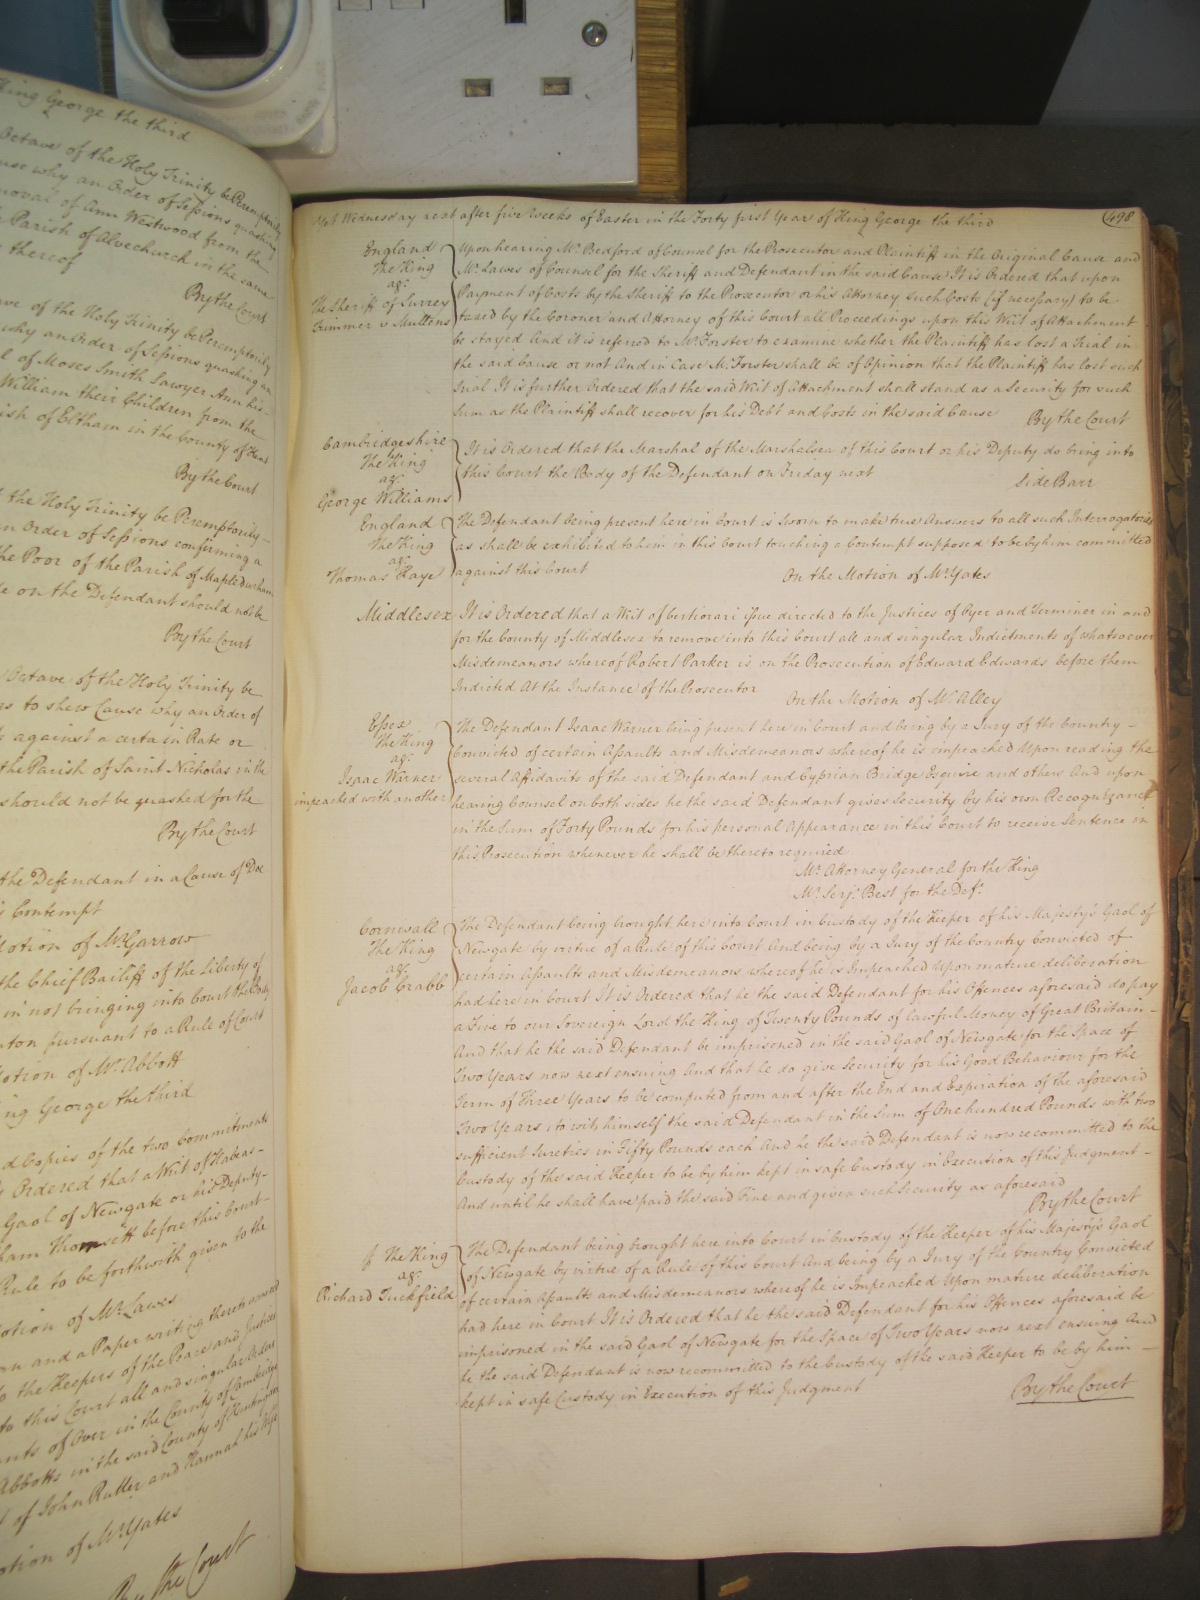 King George the third
Octave of the Holy Trinity be Peremptorily
why an Order of Sessions quashing
removal of Ann Westwood from the
Parish of Alvechurch in the same
thereof
By the Court
of the Holy Trinity be Peremptorily
why an Order of Sessions quashing an
of Moses Smith Sawyer Ann his
William their Children from the
of Eltham in the County of Kent
By the Court
the Holy Trinity be Peremptorily
an Order of Sessions confirming a
the Poor of the Parish of Mapledurham
on the Defendant should not be
By the Court
Octave of the Holy Trinity be
to shew Cause why an Order of
against a certain Rate or
the Parish of Saint Nicholas in the
should not be quashed for the
By the Court
the Defendant in a Cause of Doe
Contempt
Motion of Mr. Garrow
the Chief Bailiff of the Liberty of
in not bringing into Court the Body
pursuant to a Rule of Court
Motion of Mr. Abbott
King George the third
Copies of the two Commitments
Ordered that a Writ of Habeas
Gaol of Newgate or his Deputy
Thomsett before this Court
Rule to be forthwith given to the
Motion of Mr. Lawes
and a Paper writing
to the Keepers of the Peace and Justices
to this Court all and singular Orders
of Over in the County of Cambridge
Abbotts in the said County of Huntingdon
of John Rutter and Hannah his Wife
Motion of Mr. Yates
By the Court
Yet Wednesday next after five Weeks of Easter in the Forty first Year of King George the third
498
England
The King
agt.
The Sheriff of Surrey
Trimmer v Mullens
Upon hearing Mr. Bedford of Counsel for the Prosecutor and Plaintiff in the Original Cause and
Mr. Lawes of Counsel for the Sheriff and Defendant in the said Cause It is Ordered that upon
Payment of Costs by the Sheriff to the Prosecutor or his Attorney such Costs (if necessary) to be
taxed by the Coroner and Attorney of this Court all Proceedings upon this Writ of Attachment
be stayed And it is referred to Mr. Forster to examine whether the Plaintiff has lost a Trial in
the said Cause or not And in Case Mr. Forster shall be of Opinion that the Plaintiff has lost such
Trial It is further Ordered that the said Writ of Attachment shall stand as a Security for such
Sum as the Plaintiff shall recover for his Debt and Costs in the said Cause By the Court
Cambridgeshire
The King
agt.
George Williams
It is Ordered that the Marshal of the Marshalsea of this Court or his Deputy do bring into
this Court the Body of the Defendant on Friday next Side Barr
England
The King
agt.
Thomas Kaye
The Defendant being present here in Court is Sworn to make true Answers to all such Interrogatories
as shall be exhibited to him in this Court touching a Contempt supposed to be by him committed
against this Court On the Motion of Mr. Yates
Middlesex
It is Ordered that a Writ of Certiorari issue directed to the Justices of Oyer and Terminer in and
for the County of Middlesex to remove into this Court all and singular Indictments of whatsoever
Misdemeanors whereof Robert Parker is on the Prosecution of Edward Edwards before them
Indicted At the Instance of the Prosecutor On the Motion of Mr. Alley
Essex
The King
agt.
Isaac Warner
impeached with another
The Defendant Isaac Warner being present here in Court and being by a Jury of the Country
Convicted of certain Assaults and Misdemeanors whereof he is impeached Upon reading the
several Affidavits of the said Defendant and Cyprian Bridge Esquire and others And upon
hearing Counsel on both sides he the said Defendant gives Security by his own Recognizance
in the Sum of Forty Pounds for his personal Appearance in this Court to receive Sentence in
this Prosecution whenever he shall be thereto required
Mr. Attorney General for the King
Mr. Serjt. Best for the Deft.
Cornwall
The King
agt.
Jacob Crabb
The Defendant being brought here into Court in Custody of the Keeper of his Majesty's Gaol of
Newgate by virtue of a Rule of this Court And being by a Jury of the Country Convicted of
certain Assaults and Misdemeanors whereof he is Impeached Upon mature deliberation
had here in Court It is Ordered that he the said Defendant for his Offences aforesaid do pay
a Fine to our Sovereign Lord the King of Twenty Pounds of lawful Money of Great Britain
And that he the said Defendant be imprisoned in the said Gaol of Newgate for the Space of
Two Years now next ensuing And that he do give Security for his Good Behaviour for the
Term of Three Years to be computed from and after the End and Expiration of the aforesaid
Two Years, to wit, himself the said Defendant in the Sum of One hundred Pounds with two
sufficient Sureties in Fifty Pounds each And he the said Defendant is now recommitted to the
Custody of the said Keeper to be by him kept in safe Custody in Execution of this Judgment
And until he shall have paid the said Fine and given such Security as aforesaid
By the Court
The King
agt.
Richard Tuckfield
The Defendant being brought here into Court in Custody of the Keeper of his Majesty's Gaol
of Newgate by virtue of a Rule of this Court And being by a Jury of the Country Convicted
of certain Assaults and Misdemeanors whereof he is Impeached Upon mature deliberation
had here in Court It is Ordered that he the said Defendant for his Offences aforesaid be
imprisoned in the said Gaol of Newgate for the Space of Two Years now next ensuing And
he the said Defendant is now recommitted to the Custody of the said Keeper to be by him
kept in safe Custody in Execution of this Judgment By the Court